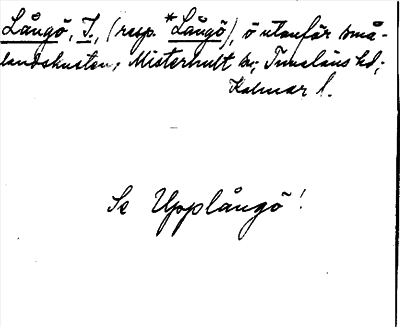 Långö, I., (resp. *Långö), ö utanför små-
landskusten, Misterhult sn; Tunaläns hd;
Kalmar l.
Se Upplångö!